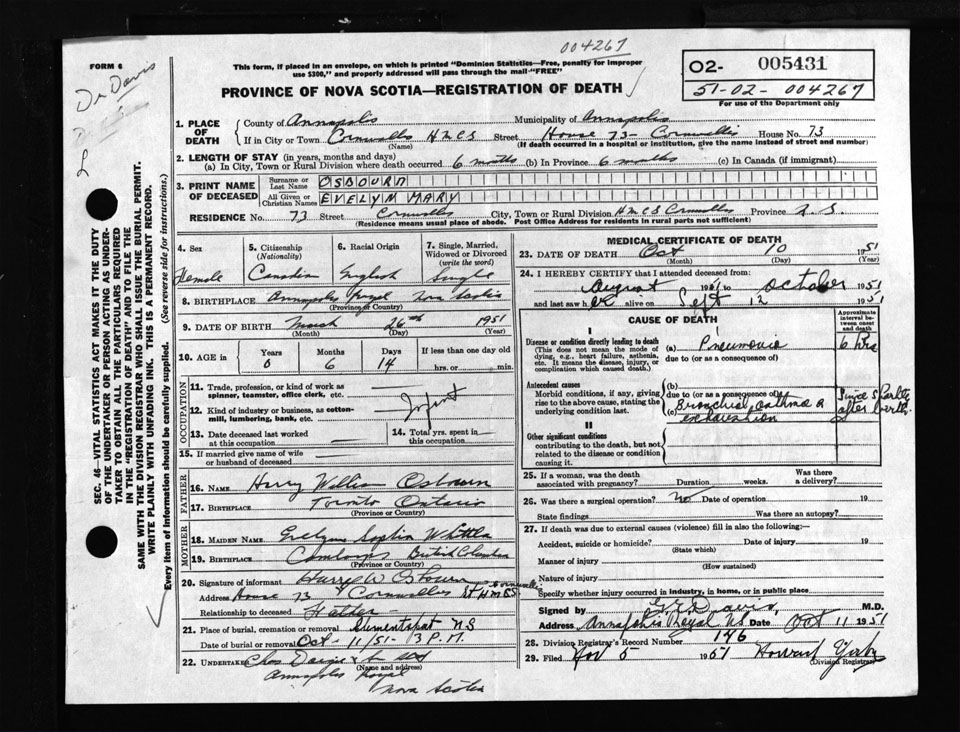 004267
FORM 6
This form, if placed in an envelope, on which is printed "Dominion Statistics—Free, penalty for improper
use $300," and properly addressed will pass through the mail "FREE"
02- 005431
51-02-004267
For use of the Department only
PROVINCE OF NOVA SCOTIA—REGISTRATION OF DEATH
Dr Davis
SEC. 46—VITAL STATISTICS ACT MAKES IT THE DUTY
OF THE UNDERTAKER OR PERSON ACTING AS UNDER-
TAKER TO OBTAIN ALL THE PARTICULARS REQUIRED
IN THE "REGISTRATION OF DEATH" AND TO FILE THE
SAME WITH THE DIVISION REGISTRAR WHO SHALL ISSUE THE BURIAL PERMIT.
WRITE PLAINLY WITH UNFADING INK. THIS IS A PERMANENT RECORD.
Every item of information should be carefully supplied. (See reverse side for instructions.)
1. PLACE OF DEATH
County of Annapolis Municipality of Annapolis
If in City or Town Cornwallis HMCS Street House 73- Cornwallis House No. 73
(Name) (If death occurred in a hospital or institution, give the name instead of street and number)
2. LENGTH OF STAY (in years, months and days)
(a) In City, Town or Rural Division where death occurred 6 months (b) In Province 6 months (c) In Canada (if immigrant)
3. PRINT NAME OF DECEASED
Surname or Last Name OSBOURN
All Given or Christian Names EVELYN MARY
RESIDENCE No. 73 Street Cornwallis City, Town or Rural Division HMCS Cornwallis Province N.S.
(Residence means usual place of abode. Post Office Address for residents in rural parts not sufficient)
4. Sex Female
5. Citizenship (Nationality) Canadian
6. Racial Origin English
7. Single, Married, Widowed or Divorced (write the word) Single
8. BIRTHPLACE Annapolis Royal Nova Scotia
(Province or Country)
9. DATE OF BIRTH March 26th 1951
(Month) (Day) (Year)
10. AGE in Years Months Days If less than one day old
0 6 14 hrs. or min.
OCCUPATION
11. Trade, profession, or kind of work as
spinner, teamster, office clerk, etc.
12. Kind of industry or business, as cotton-
mill, lumbering, bank, etc. Infant
13. Date deceased last worked
at this occupation
14. Total yrs. spent in
this occupation
15. If married give name of wife
or husband of deceased
FATHER
16. NAME Harry William Osbourn
17. BIRTHPLACE Toronto Ontario
(Province or Country)
MOTHER
18. MAIDEN NAME Evelynne Sophia
19. BIRTHPLACE British Columbia
(Province or Country)
20. Signature of informant Harry W Osbourn
Address House 73 Cornwallis St HMCS Cornwallis
Relationship to deceased Father
21. Place of burial, cremation or removal Clementsport NS
Date of burial or removal Oct-11/51-3 P.M.
22. UNDERTAKER Chas
(Name and address)
Annapolis Royal
Nova Scotia
MEDICAL CERTIFICATE OF DEATH
23. DATE OF DEATH Oct 10 1951
(Month) (Day) (Year)
24. I HEREBY CERTIFY that I attended deceased from:
August 1951 to October 1951
and last saw her alive on Sept 12 1951
CAUSE OF DEATH
Approximate interval between onset and death
I
Disease or condition directly leading to death
(This does not mean the mode of
dying, e.g., heart failure, asthenia,
etc. It means the disease, injury, or
complication which caused death.)
(a) Pneumonia 6 hrs
due to (or as a consequence of)
Antecedent causes
Morbid conditions, if any, giving
rise to the above cause, stating the
underlying condition last.
(b)
due to (or as a consequence of)
(c) Bronchial asthma & exhaustion
Since shortly after birth.
II
Other significant conditions
contributing to the death, but not
related to the disease or condition
causing it.
25. If a woman, was the death
associated with pregnancy? Duration weeks. Was there a delivery?
26. Was there a surgical operation? no Date of operation 19
State findings Was there an autopsy?
27. If death was due to external causes (violence) fill in also the following:—
Accident, suicide or homicide? Date of injury 19
(State which)
Manner of injury
(How sustained)
Nature of injury
Specify whether injury occurred in industry, in home, or in public place
Signed by Davis M.D.
Address Annapolis Royal NS Date Oct 11 1951
28. Division Registrar's Record Number 146
29. Filed Nov 5 1951 Howard
(Division Registrar)